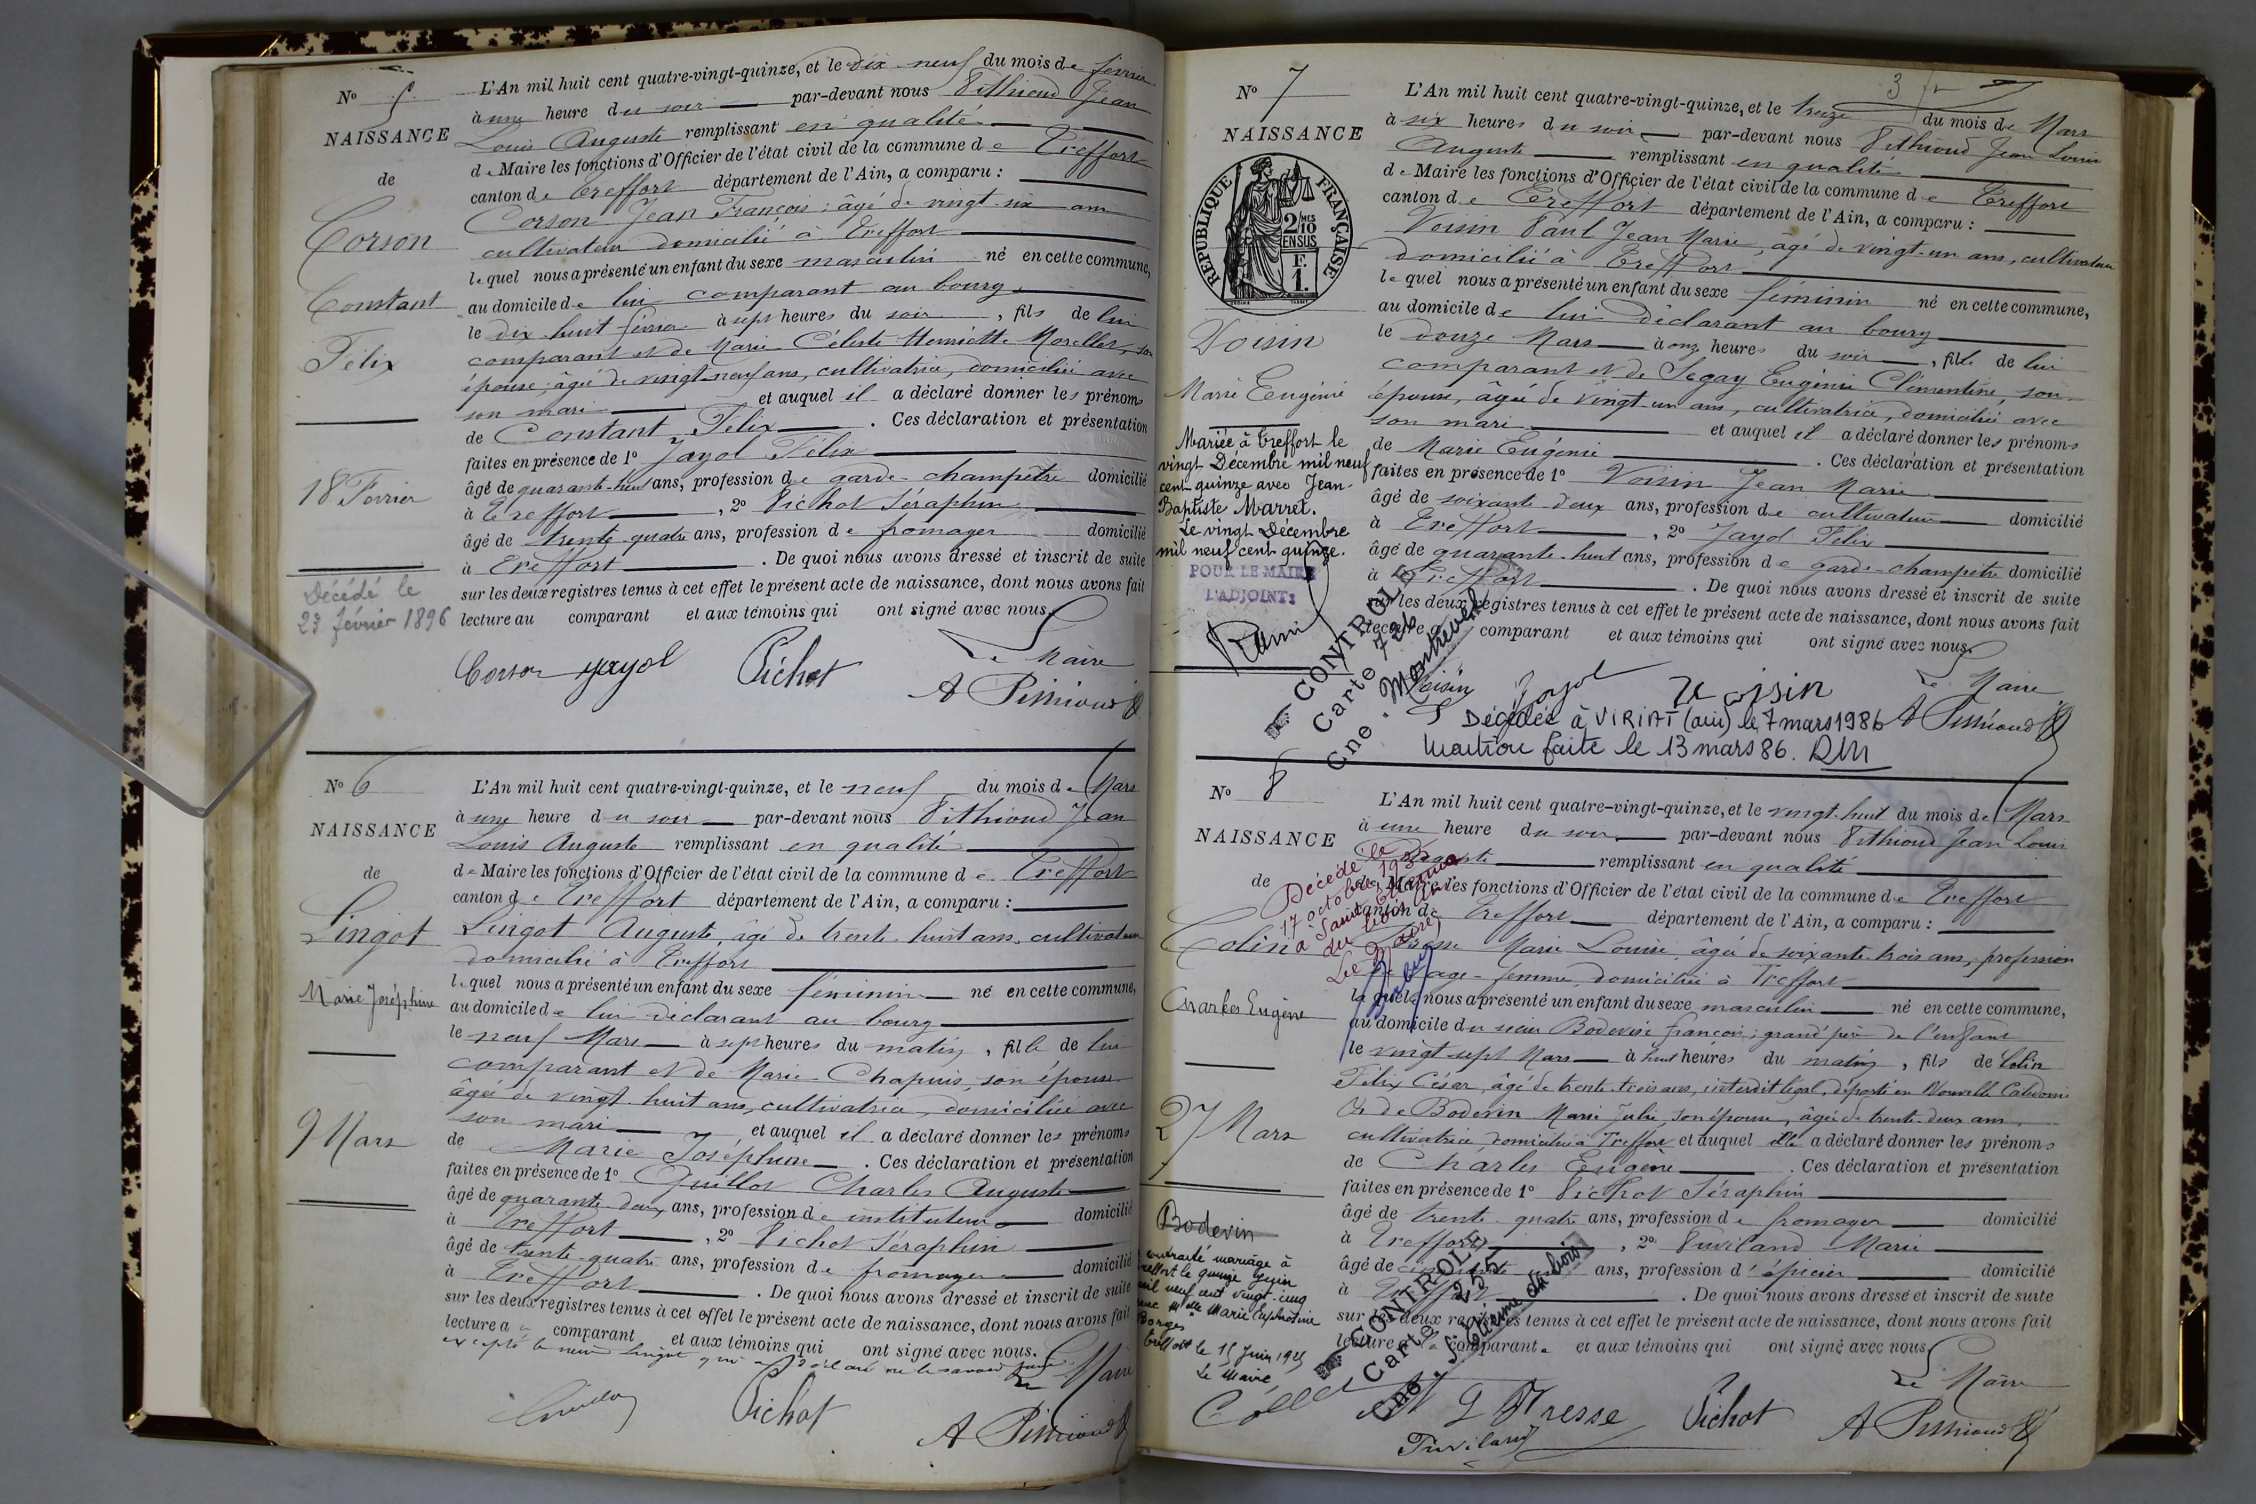 N° 5
NAISSANCE
de
Corson
Constant
Félix
18 Février
Décédé le
23 février 1896
L'An mil huit cent quatre-vingt-quinze, et le dix-neuf du mois de février
à une heure du soir par-devant nous Pithioud Jean
Louis Auguste remplissant en qualité
de Maire les fonctions d'Officier de l'état civil de la commune de Treffort
canton de Treffort département de l'Ain, a comparu :
Corson Jean François, âgé de vingt-six ans
cultivateur domicilié à Treffort
lequel nous a présenté un enfant du sexe masculin né en cette commune,
au domicile de lui comparant au bourg
le dix-huit février à sept heures du soir, fils de lui
comparant et de Marie Céleste Henriette Morellet, son
épouse, âgée de vingt-neuf ans, cultivatrice, domiciliée avec
son mari et auquel il a déclaré donner les prénoms
de Constant Félix. Ces déclaration et présentation
faites en présence de 1° Jayol Félix
âgé de quarante-huit ans, profession de garde-champêtre domicilié
à Treffort, 2° Pichot Séraphin
âgé de trente-quatre ans, profession de fromager domicilié
à Treffort. De quoi nous avons dressé et inscrit de suite
sur les deux registres tenus à cet effet le présent acte de naissance, dont nous avons fait
lecture au comparant et aux témoins qui ont signé avec nous.
Corson Jayol Pichot Le Maire
A Pithioud
N° 6
NAISSANCE
de
Lingot
Marie Joséphine
9 Mars
L'An mil huit cent quatre-vingt-quinze, et le neuf du mois de Mars
à une heure du soir par-devant nous Pithioud Jean
Louis Auguste remplissant en qualité
de Maire les fonctions d'Officier de l'état civil de la commune de Treffort
canton de Treffort département de l'Ain, a comparu :
Lingot Auguste, âgé de trente-huit ans, cultivateur
domicilié à Treffort
lequel nous a présenté un enfant du sexe féminin né en cette commune,
au domicile de lui déclarant au bourg
le neuf Mars à sept heures du matin, fille de lui
comparant et de Marie Chapuis, son épouse
âgée de vingt-huit ans, cultivatrice, domiciliée avec
son mari et auquel il a déclaré donner les prénoms
de Marie Joséphine. Ces déclaration et présentation
faites en présence de 1° Guillot Charles Auguste
âgé de quarante-deux ans, profession de instituteur domicilié
à Treffort, 2° Pichot Séraphin
âgé de trente-quatre ans, profession de fromager domicilié
à Treffort. De quoi nous avons dressé et inscrit de suite
sur les deux registres tenus à cet effet le présent acte de naissance, dont nous avons fait
lecture au comparant et aux témoins qui ont signé avec nous.
excepté le Lingot qui a déclaré ne le savoir faire
Le Maire
Guillot Pichot A Pithioud
N° 7
NAISSANCE
RÉPUBLIQUE FRANÇAISE
2 MES
10
EN SUS
F.
1.
Voisin
Marie Eugénie
Mariée à Treffort le
vingt Décembre mil neuf
cent quinze avec Jean-
Baptiste Marret.
Le vingt Décembre
mil neuf cent quinze.
POUR LE MAIRE
L'ADJOINT:
3
L'An mil huit cent quatre-vingt-quinze, et le treize du mois de Mars
à six heures du soir par-devant nous Pithioud Jean Louis
Auguste remplissant en qualité
de Maire les fonctions d'Officier de l'état civil de la commune de Treffort
canton de Treffort département de l'Ain, a comparu :
Voisin Paul Jean Marie, âgé de vingt-un ans, cultivateur
domicilié à Treffort
lequel nous a présenté un enfant du sexe féminin né en cette commune,
au domicile de lui déclarant au bourg
le douze Mars à onz heures du soir, fille de lui
comparant et de Segay Eugénie Clémentine, son
épouse, âgée de vingt-un ans, cultivatrice, domiciliée avec
son mari et auquel il a déclaré donner les prénoms
de Marie Eugénie. Ces déclaration et présentation
faites en présence de 1° Voisin Jean Marie
âgé de soixante-deux ans, profession de cultivateur domicilié
à Treffort, 2° Jayol Félix
âgé de quarante-huit ans, profession de garde-champêtre domicilié
à Treffort. De quoi nous avons dressé et inscrit de suite
sur les deux registres tenus à cet effet le présent acte de naissance, dont nous avons fait
lecture au comparant et aux témoins qui ont signé avec nous.
CONTROLE
Carte 726
Cne. Montrevel
Voisin Jayol Voisin Le Maire
A Pithioud
Décédée à VIRIAT (ain) le 7 mars 1986
Mention faite le 13 mars 86.
N° 8
NAISSANCE
de
Colin
Charles Eugène
27 Mars
Bodevin
contracté mariage à
Treffort le quinze Juin
mil neuf cent vingt-cinq
avec Melle Marie Euphrosine
Borges
Treffort le 15 Juin 1925
Le Maire,
Décédé le
17 octobre
à Saint Etienne
du bois
Le Maire,
L'An mil huit cent quatre-vingt-quinze, et le vingt-huit du mois de Mars
à une heure du soir par-devant nous Pithioud Jean Louis
Auguste remplissant en qualité
de Maire les fonctions d'Officier de l'état civil de la commune de Treffort
canton de Treffort département de l'Ain, a comparu :
Fresse Marie Louise, âgée de soixante-trois ans, profession
de sage-femme, domiciliée à Treffort
laquelle nous a présenté un enfant du sexe masculin né en cette commune,
au domicile du sieur Bodevin françois, grand père de l'enfant
le vingt-sept Mars à huit heures du matin, fils de Colin
Félix César, âgé de trente-trois ans, interdit légal, déporté en Nouvelle Calédonie
et de Bodevin Marie Julie, son épouse, âgée de trente-deux ans,
cultivatrice domiciliée à Treffort et auquel elle a déclaré donner les prénoms
de Charles Eugène. Ces déclaration et présentation
faites en présence de 1° Pichot Séraphin
âgé de trente-quatre ans, profession de fromager domicilié
à Treffort, 2° Puviland Marie
âgé de cinquante ans, profession d'épicier domicilié
à Treffort. De quoi nous avons dressé et inscrit de suite
sur les deux registres tenus à cet effet le présent acte de naissance, dont nous avons fait
lecture à la comparante et aux témoins qui ont signé avec nous
CONTROLE
Carte 255
Cne. St Etienne du bois
Le Maire
M L Fresse Pichot A Pithioud
Puviland